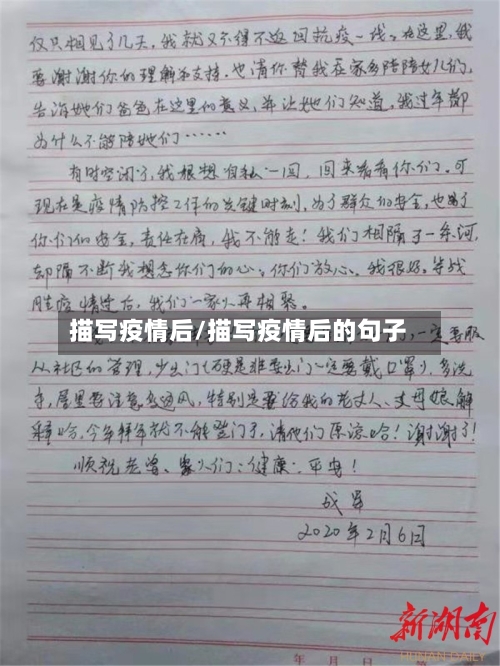 仅只相见了几天，我就又不得不返回抗疫一线。在这里，我
要谢谢你的理解和支持。也请你替我在家多陪陪女儿们，
告诉她们爸爸在这里的意义，并让她们知道，我过年都
为什么不能陪她们……
有时空闲了，我很想自私一回，回来看看你们。可
现在是疫情防控工作的关键时刻，为了群众们的安全，也为了
你们们的安全，责任在肩，我不能走！我们相隔了一条河，
却隔不断我想念你们的心。你们放心，我很好。等战
胜疫情过后，我们一家人再相聚。
描写疫情后/描写疫情后的句子
一定要服
从社区的管理，少出门（硬是非要出门一定要戴口罩），多洗
手，屋里要注意多通风，特别是要给我的老丈人、丈母娘解
释哈，今年拜年我不能登门了，请他们原谅哈！谢谢了！
顺祝老婆、家人们：健康、平安！
战军
2020年2月6日
新湖南
HUNAN DAILY
年 月 日